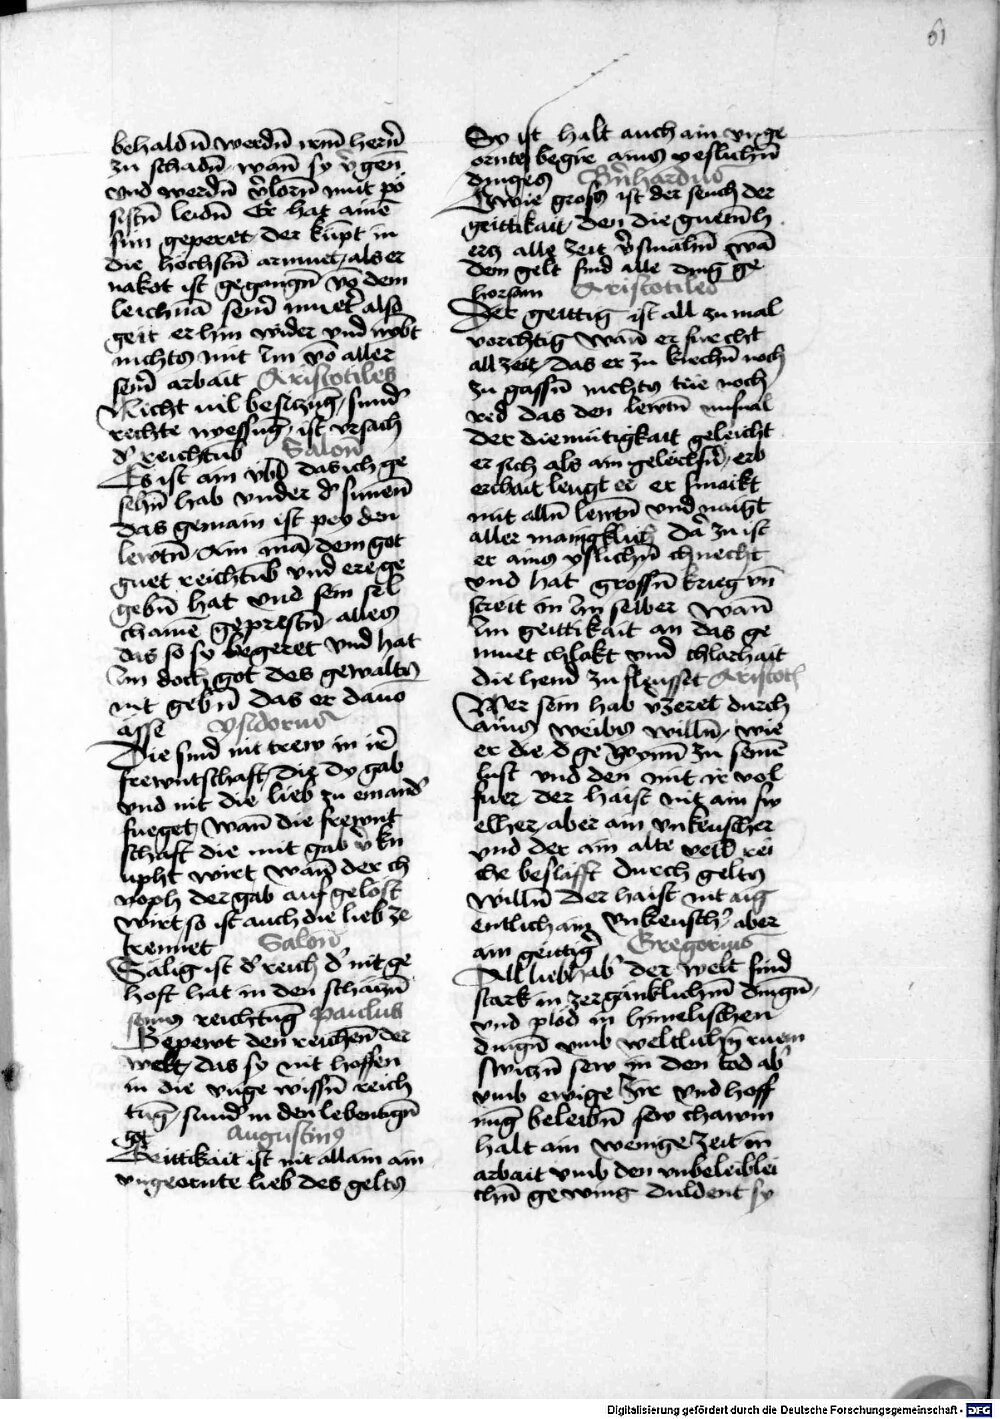 61
behaldn̄ werdn̄ irm̄ herr̄n
zu schadn̄ wann̄ sy v̓gen̄
vnd werdn̄ v̓lorn̄ mit po
sistn̄ leidn̄ Er hat ainē
sun geperet der kūpt in
die hochstn̄ armuet als er
nakot ist gegangn̄ vō dem
leichnā sein̓ muet̓ also
geit er hin wider vnd
nichts mit im vō aller
sein̓ arbait Aristotiles
Nicht uil besiczūg sund̓
rechte messūg ist vrsach
d̓ reichtūb Salon̄
Es ist ain vbl das ich ge
sehn̄ hab vnder d̓ sunen̄
das gemain ist pey den
lewtn̄ Ain mā dem got
guet reichtūb vnd ere ge
gebn̄ hat vnd sein sel
chainē geprestn̄ alles
das so sy begeret vnd hat
im doch got des gewalts
nit gebn̄ das er dauō
āsse ysidorus
Die sind nit trew in ir̓
frewntschaft die dy gab
vnd nit die lieb zu einand̓
fueget wan̄ die frewnt
schaft die mit gab v̓kn
upht wirt wan̄ der ch
noph der gab auf gelost
wirt so ist auch die lieb ze
trennet Salon̄
Salig ist d̓ reich d̓ nit ge
hoft hat in den schaczn̄
seins reichtūg Paulus
Gepewt den reichen̄ der
welt das so nit hoffen
in die vnge wissn̄ reich
tūg sund̓ in den lebentign̄
got Augustin9
Geittikait ist nit allain ain
vngeornte lieb des gelts
So ist halt auch ain vnge
ornte begir ains yeslichn̄
dinges Bn̄hardus
Wie gross ist der seuch der
geittikait den die guetn̄ h
ercz alle zeit v̓smahn̄ wā
dem gelt sind alle ding ge
horsam Aristotiles
Der geittig ist all zu mal
vorchtig wan̄ er fuercht
all zeit das er zu kirchn̄ noch
zu gassn̄ nichts tue noch
red das den lewtn̄ misual
der diemütigkait geleicht
er sich als ain geleichsn̓ erb
erchait leugt er er smaikt
mit alln̄ lewtn̄ vnd naigt
aller manigklich da zu ist
er ains yslichn̄ chnecht
vnd hat grossn̄ krieg vn̄
streit in im selber wan̄
im geittikait an das ge
muet chlokt vnd chlarhait
die hend zu Aristotl
Wer sein hab v̓zeret durch
ains weibs willn̄ wie
er die d ge wynn̄ zu seinē
lust vnd den mit ir vol
fuer der haist nit ain
aber ain vnkeuscher
vnd der ain alte reī
che beslafft durch gelts
willn̄ der haist nit aig
entlich ain vnkeusch̓ aber
ain geittig̓ Gregorius
All liebhab̓ der welt sind
stark in zerganklichn̄ dingn̄
vnd plod in himelischen
dingn̄ vmb weltlichn̄ ruem
switzn̄ sew in den tod ab̓
vmb ewige Er vnd hoff
nūg beleibn̄ sew chawm
halt ain wenige zeit in
arbait vmb den vnbeleibli
chn̄ ge wing duldent sy
Digitalisierung gefördert durch die Deutsche Forschungsgemeinschaft - DFG